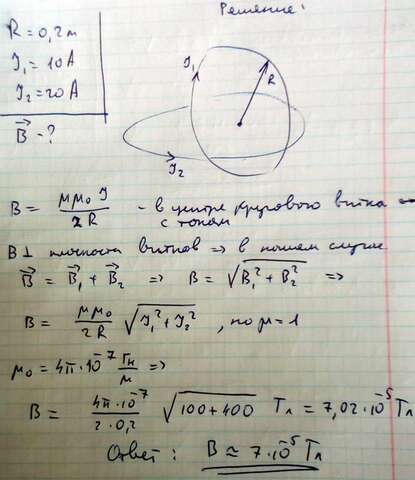 Решение:
R = 0,2 м
J₁ = 10 А
J₂ = 20 А
B⃗ - ?
J₁
R
J₂
B = μμ₀ J / 2R - в центре кругового витка ⇒
с током
B ⊥ плоскости витков ⇒ в нашем случае
B⃗ = B⃗₁ + B⃗₂ ⇒ B = √(B₁² + B₂²) ⇒
B = μμ₀ / 2R √(J₁² + J₂²) , но μ = 1
μ₀ = 4π·10⁻⁷ Гн/м ⇒
B = 4π·10⁻⁷ / 2·0,2 √(100+400) Тл = 7,02·10⁻⁵ Тл
Ответ: B ≃ 7·10⁻⁵ Тл